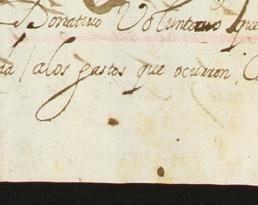 Donativo Voluntario que
/alos gastos que ocurren